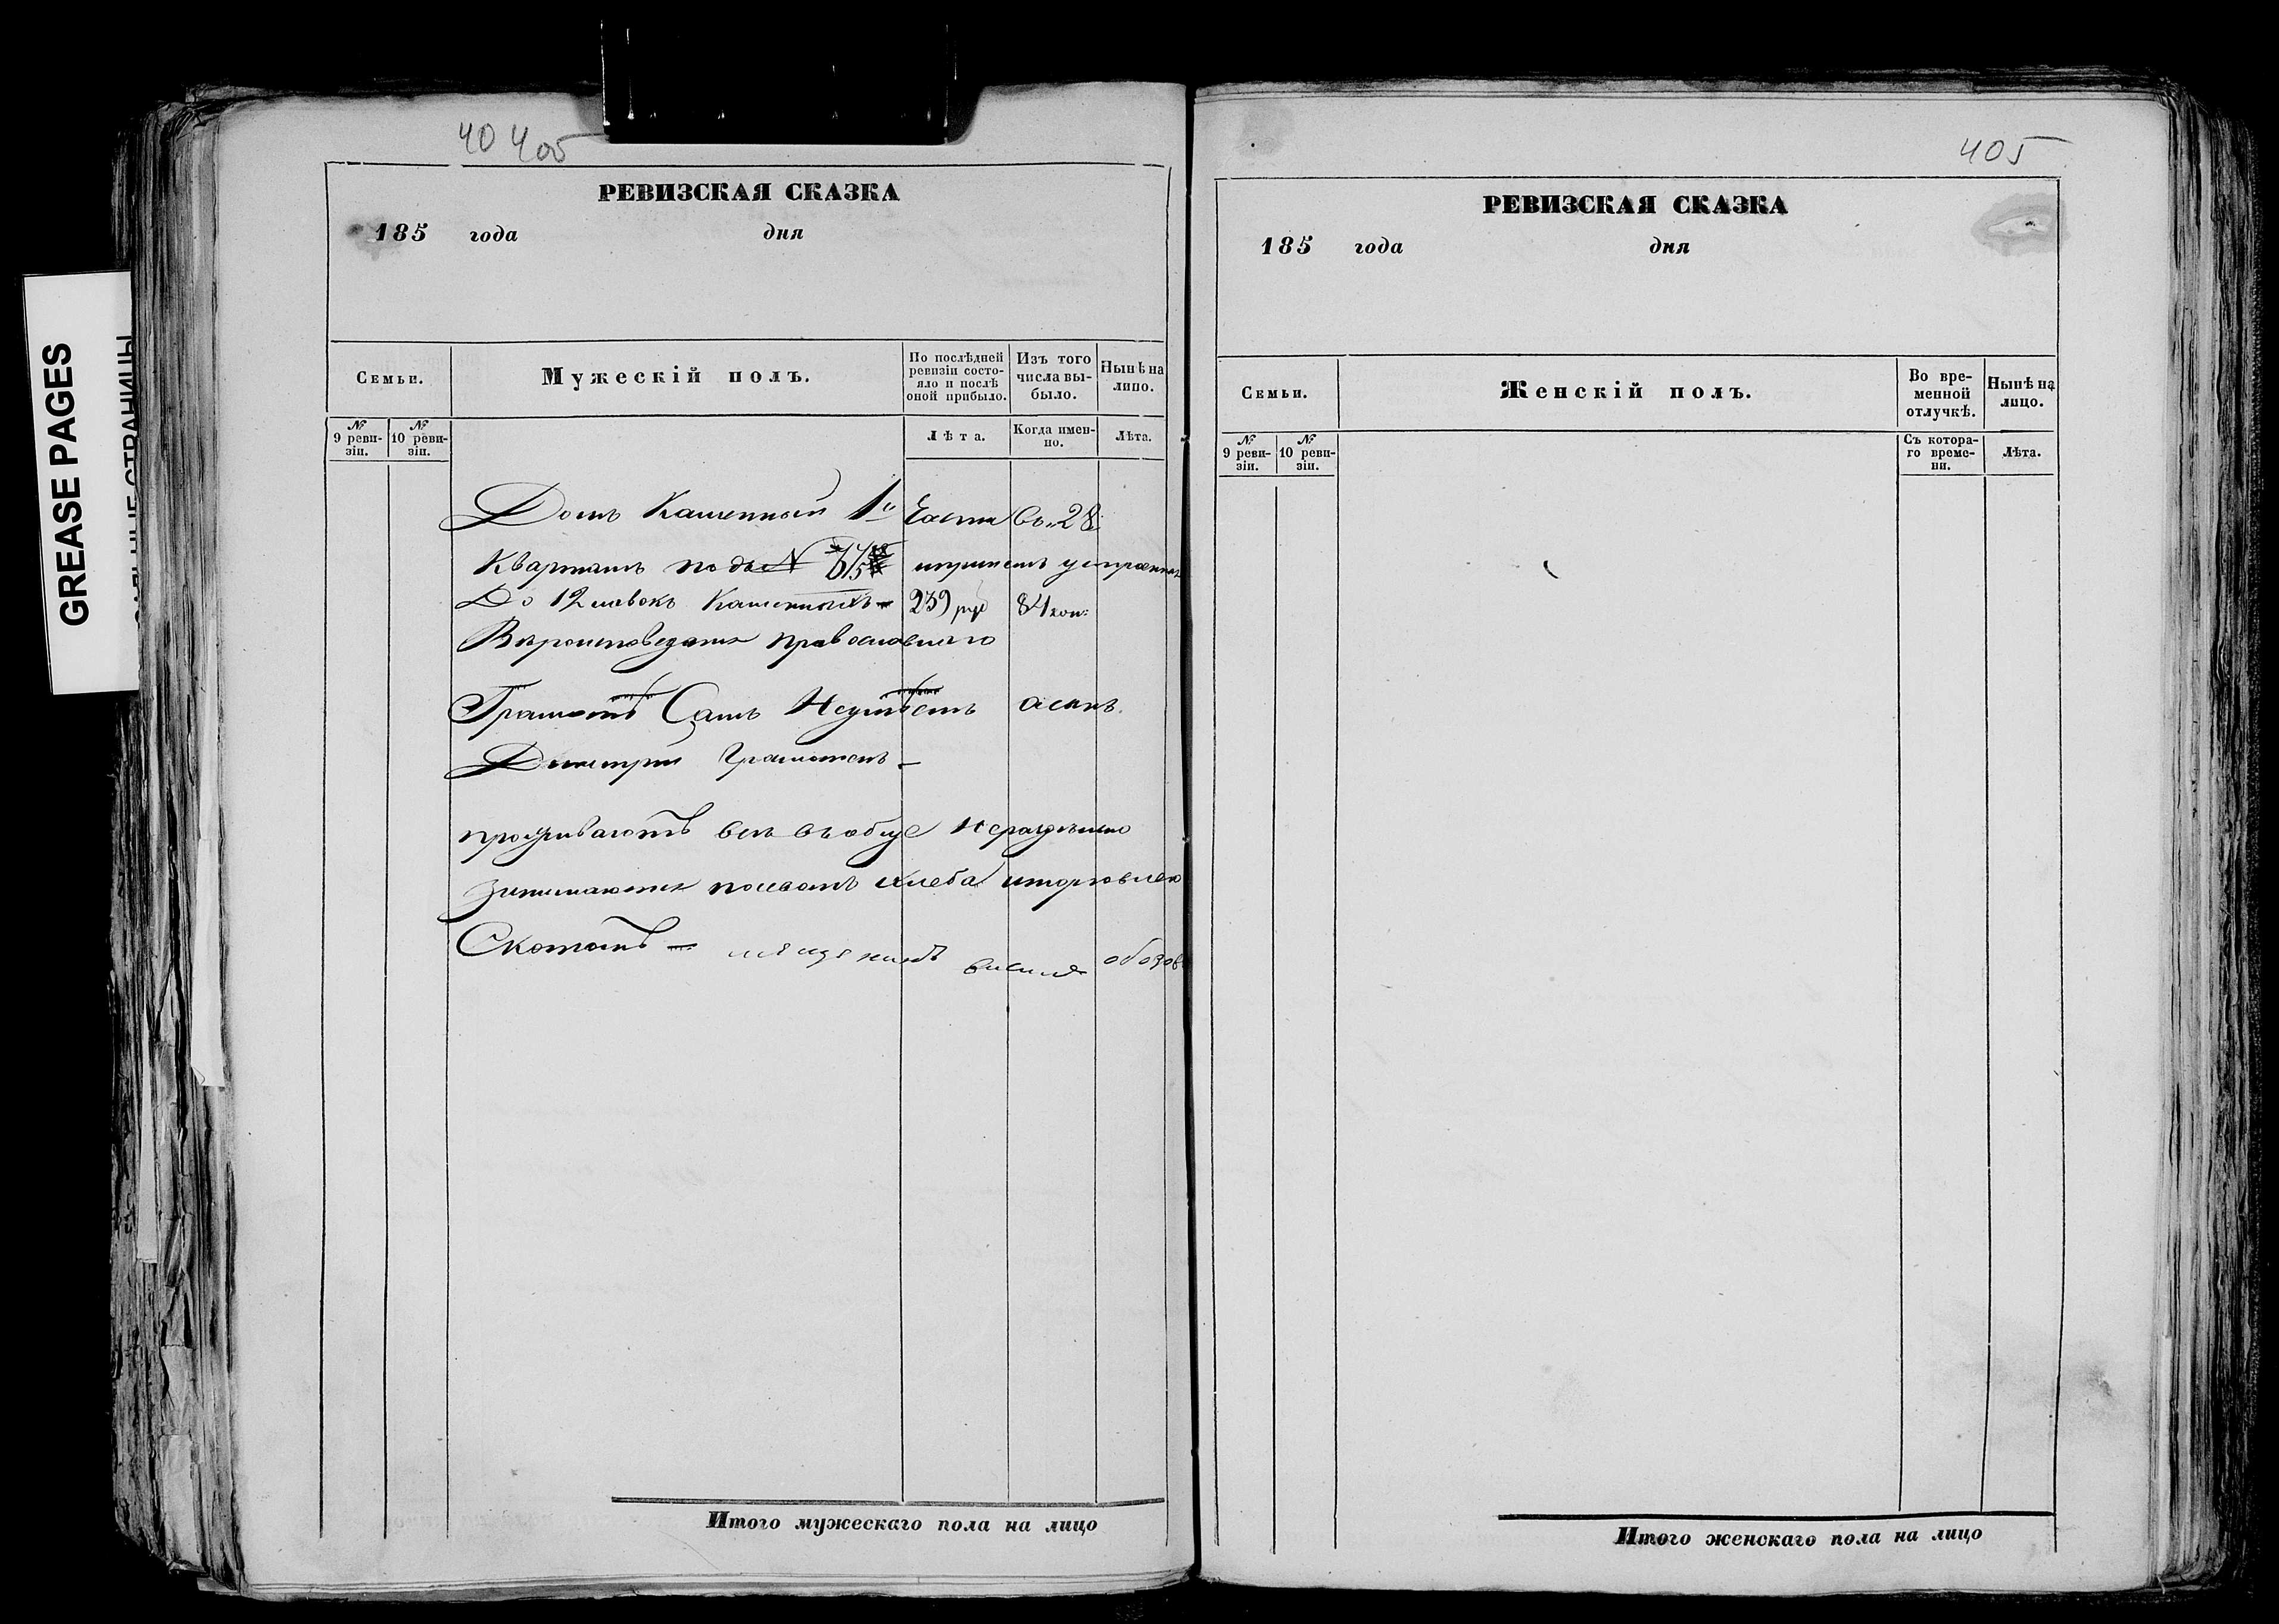 GREASE PAGES
40 405
РЕВИЗСКАЯ СКАЗКА
185 года дня
Семьи.
Мужескій полъ.
По послѣдней ревизіи состояло и послѣ оной прибыло.
Изъ того числа выбыло.
Нынѣ на лицо.
№ 9 ревизіи.
№ 10 ревизіи.
Лѣта.
Когда именно.
Лѣта.
Домъ Каменный 1й Части Въ 28
Кварталѣ подъ №
До 12 лавокъ Каменныхъ 239 руб 84 коп:
Вѣроисповеданія православнаго
Грамотѣ Самъ Неумѣетъ асынъ
Дмитрій Грамотенъ
проживаютъ всѣ въобще Нераздѣльно
Занимаются посевомъ хлеба иторговлею
Скотомъ
Итого мужескаго пола на лицо
405
РЕВИЗСКАЯ СКАЗКА
185 года дня
Семьи.
Женскій полъ.
Во временной отлучкѣ.
Нынѣ на лицо.
№ 9 ревизіи.
№ 10 ревизіи.
Съ котораго времени.
Лѣта.
Итого женскаго пола на лицо